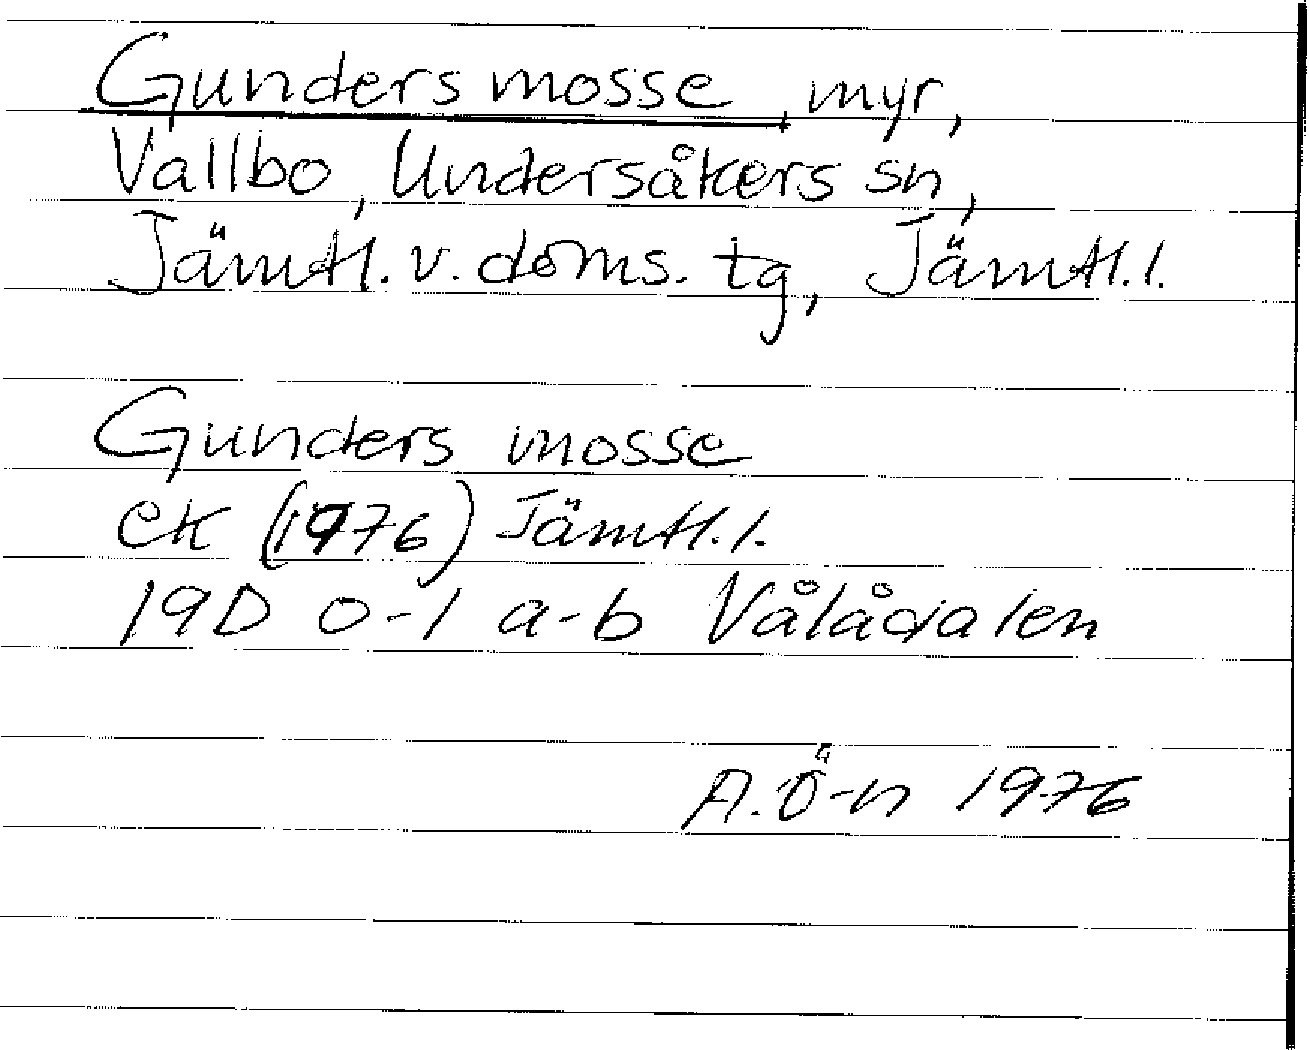 Gunders mosse, myr,
Vallbo, Undersåkers sn,
Jämtl. v. doms. tg, Jämtl. l.
Gunders mosse
ek (1976) Jämtl. l.
19D 0-1 a-b Vålådalen
A. Ö-n 1976